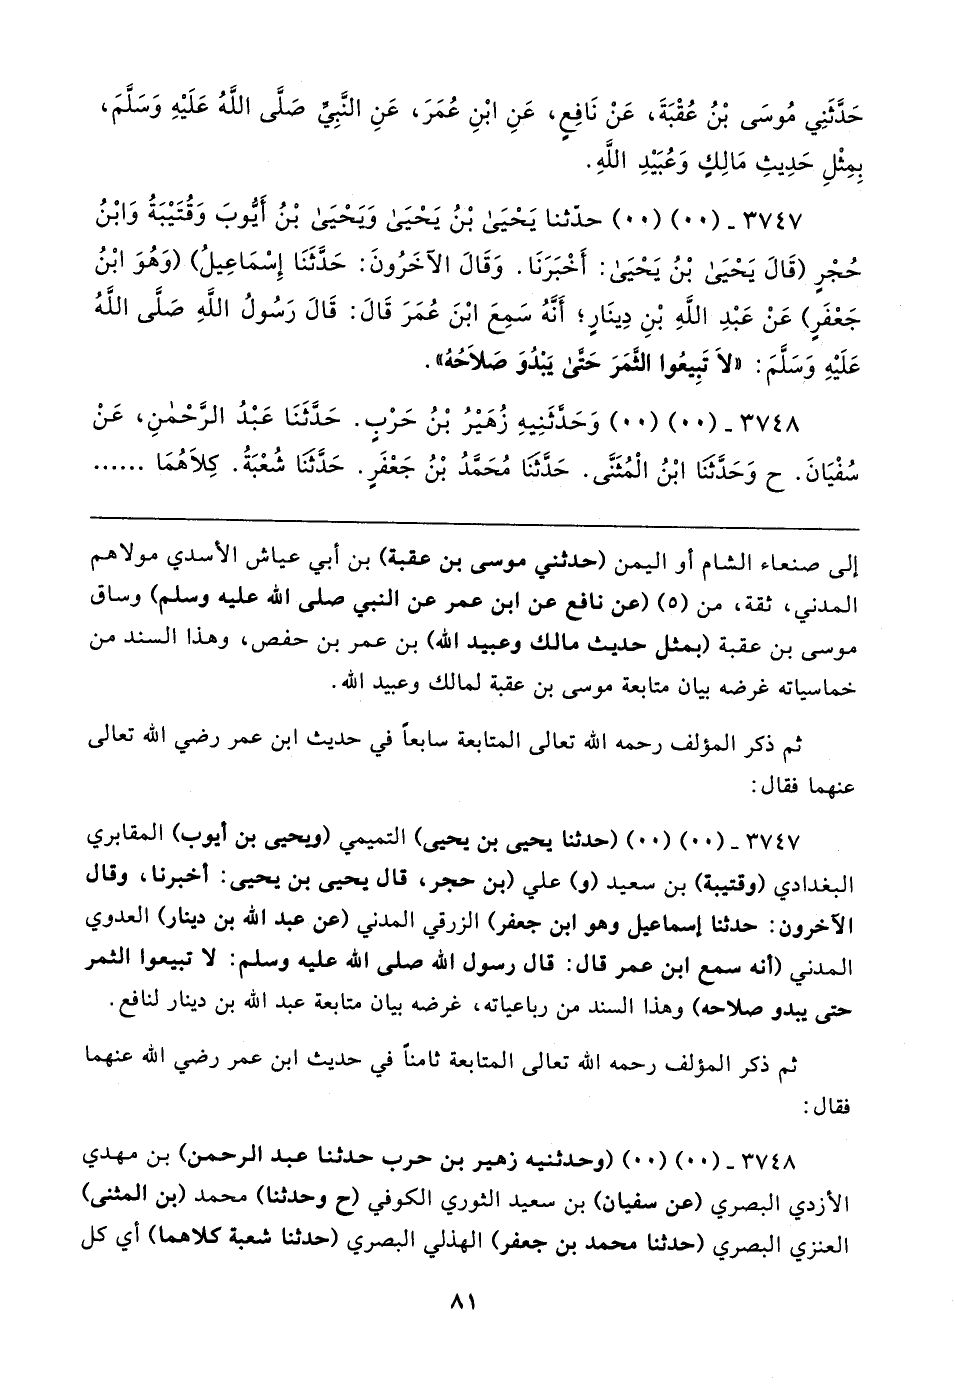 حَدَّثَنِي مُوسَى بْنُ عُقْبَةَ، عَنْ نَافِعٍ، عَنِ ابْنِ عُمَرَ، عَنِ النَّبِيِّ صَلَّى اللَّهُ عَلَيْهِ وَسَلَّمَ،
بِمِثْلِ حَدِيثِ مَالِكٍ وَعُبَيْدِ اللَّهِ.
٣٧٤٧ ـ (٠٠) (٠٠) حدّثنا يَحْيَىٰ بْنُ يَحْيَىٰ وَيَحْيَىٰ بْنُ أَيُّوبَ وَقُتَيْبَةُ وَابْنُ
حُجْرٍ (قَالَ يَحْيَىٰ بْنُ يَحْيَىٰ: أَخْبَرَنَا. وَقَالَ الآخَرُونَ: حَدَّثَنَا إِسْمَاعِيلُ) (وَهُوَ ابْنُ
جَعْفَرٍ) عَنْ عَبْدِ اللَّهِ بْنِ دِينَارٍ؛ أَنَّهُ سَمِعَ ابْنَ عُمَرَ قَالَ: قَالَ رَسُولُ اللَّهِ صَلَّى اللَّهُ
عَلَيْهِ وَسَلَّمَ: «لاَ تَبِيعُوا الثَّمَرَ حَتَّىٰ يَبْدُوَ صَلاَحُهُ».
٣٧٤٨ ـ (٠٠) (٠٠) وَحَدَّثَنِيهِ زُهَيْرُ بْنُ حَرْبٍ. حَدَّثَنَا عَبْدُ الرَّحْمٰنِ، عَنْ
سُفْيَانَ. ح وَحَدَّثَنَا ابْنُ الْمُثَنَّى. حَدَّثَنَا مُحَمَّدُ بْنُ جَعْفَرٍ. حَدَّثَنَا شُعْبَةُ. كِلاَهُمَا ......
إلى صنعاء الشام أو اليمن (حدثني موسى بن عقبة) بن أبي عياش الأسدي مولاهم
المدني، ثقة، من (٥) (عن نافع عن ابن عمر عن النبي صلى الله عليه وسلم) وساق
موسى بن عقبة (بمثل حديث مالك وعبيد الله) بن عمر بن حفص، وهذا السند من
خماسياته غرضه بيان متابعة موسى بن عقبة لمالك وعبيد الله.
ثم ذكر المؤلف رحمه الله تعالى المتابعة سابعاً في حديث ابن عمر رضي الله تعالى
عنهما فقال:
٣٧٤٧ ـ (٠٠) (٠٠) (حدثنا يحيى بن يحيى) التميمي (ويحيى بن أيوب) المقابري
البغدادي (وقتيبة) بن سعيد (و) علي (بن حجر، قال يحيى بن يحيى: أخبرنا، وقال
الآخرون: حدثنا إسماعيل وهو ابن جعفر) الزرقي المدني (عن عبد الله بن دينار) العدوي
المدني (أنه سمع ابن عمر قال: قال رسول الله صلى الله عليه وسلم: لا تبيعوا الثمر
حتى يبدو صلاحه) وهذا السند من رباعياته، غرضه بيان متابعة عبد الله بن دينار لنافع.
ثم ذكر المؤلف رحمه الله تعالى المتابعة ثامناً في حديث ابن عمر رضي الله عنهما
فقال:
٣٧٤٨ ـ (٠٠) (٠٠) (وحدثنيه زهير بن حرب حدثنا عبد الرحمن) بن مهدي
الأزدي البصري (عن سفيان) بن سعيد الثوري الكوفي (ح وحدثنا) محمد (بن المثنى)
العنزي البصري (حدثنا محمد بن جعفر) الهذلي البصري (حدثنا شعبة كلاهما) أي كل
٨١